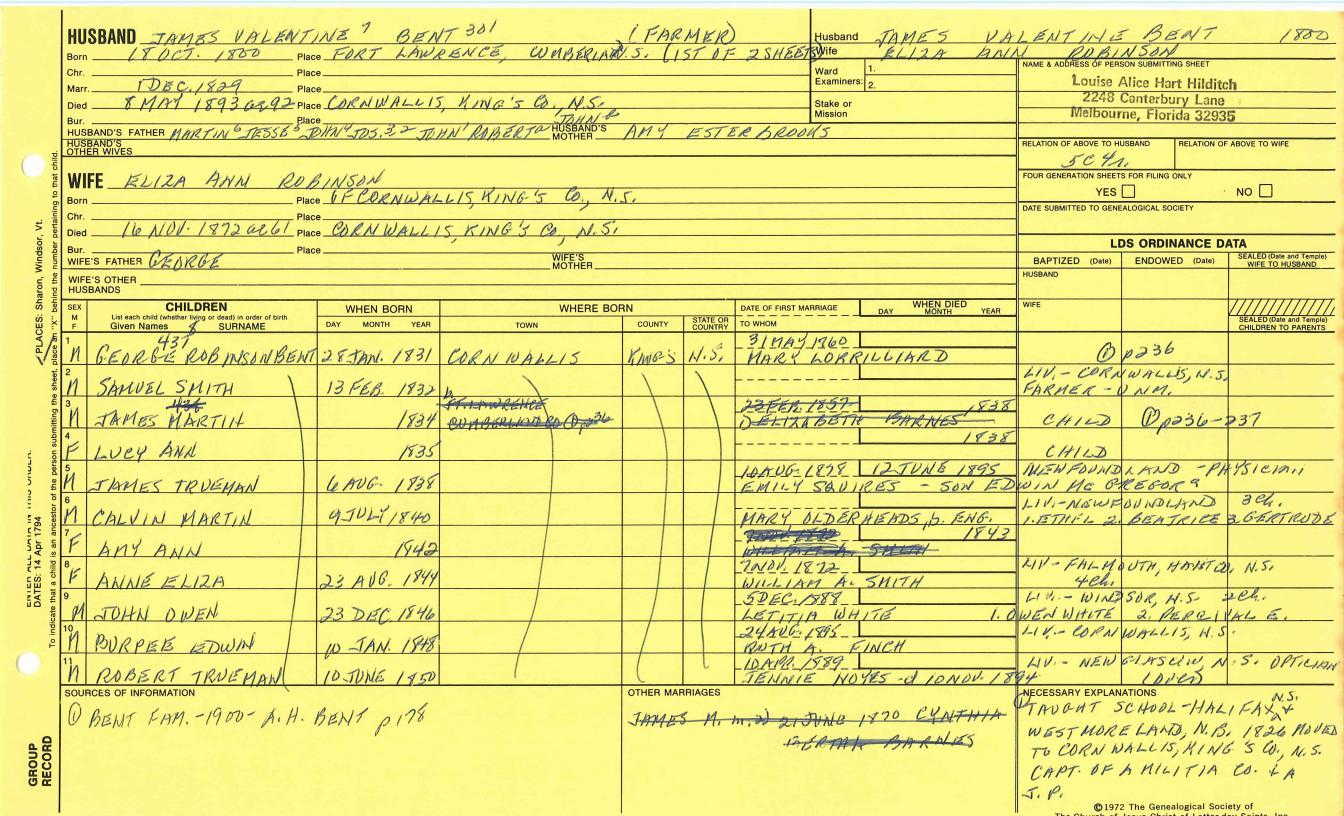 HUSBAND JAMES VALENTINE 7 BENT 301 (FARMER)
Born 18 OCT. 1800 Place FORT LAWRENCE, CUMBERLAND N.S. (1ST OF 2 SHEETS)
Chr. Place
Marr. 1 DEC. 1829 Place
Died 8 MAY 1893 ae 92 Place CORNWALLIS, KING'S Co., N.S.
Bur. Place
HUSBAND'S FATHER MARTIN 6 JESSE 5 JOHN 4 JOS. 3, 2 JOHN 1 ROBERT a JOHN b HUSBAND'S MOTHER AMY ESTERBROOKS
HUSBAND'S OTHER WIVES
Husband JAMES VALENTINE BENT 1800
Wife ELIZA ANN ROBINSON
Ward Examiners: 1.
2.
Stake or Mission
NAME & ADDRESS OF PERSON SUBMITTING SHEET
Louise Alice Hart Hilditch
2248 Canterbury Lane
Melbourne, Florida 32935
RELATION OF ABOVE TO HUSBAND RELATION OF ABOVE TO WIFE
5C 4r.
FOUR GENERATION SHEETS FOR FILING ONLY
YES NO
DATE SUBMITTED TO GENEALOGICAL SOCIETY
WIFE ELIZA ANN ROBINSON
Born Place OF CORNWALLIS, KING'S Co., N.S.
Chr. Place
Died 16 NOV. 1872 ae 61 Place CORNWALLIS, KING'S Co, N.S.
Bur. Place
WIFE'S FATHER GEORGE WIFE'S MOTHER
WIFE'S OTHER HUSBANDS
LDS ORDINANCE DATA
BAPTIZED (Date) ENDOWED (Date) SEALED (Date and Temple) WIFE TO HUSBAND
HUSBAND
WIFE
SEALED (Date and Temple) CHILDREN TO PARENTS
SEX M F CHILDREN WHEN BORN WHERE BORN DATE OF FIRST MARRIAGE WHEN DIED
List each child (whether living or dead) in order of birth
Given Names SURNAME DAY MONTH YEAR TOWN COUNTY STATE OR COUNTRY TO WHOM DAY MONTH YEAR
1 M 437 GEORGE ROBINSON BENT 28 JAN. 1831 CORNWALLIS KING'S N.S. 31 MAY 1860 MARY LORRILLIARD ① p236
2 M SAMUEL SMITH 13 FEB. 1832 LIV.- CORNWALLIS, N.S. FARMER - UNM.
3 M JAMES MARTIN 1834 FT. LAWRENCE CUMBERLAND Co ① p236 23 FEB. 1857 ELIZABETH BARNES 1838 CHILD ① p236-237
4 F LUCY ANN 1835 1838 CHILD
5 M JAMES TRUEMAN 6 AUG. 1838 10 AUG. 1878 12 JUNE 1895 NEWFOUNDLAND - PHYSICIAN
EMILY SQUIRES - SON EDWIN MCGREGOR
6 M CALVIN MARTIN 9 JULY 1840 MARY OLDERHEADS, b. ENG. LIV.-NEWFOUNDLAND 3 Ch.
1. ETHEL 2. BEATRICE 3. GERTRUDE
7 F AMY ANN 1842 WILLIAM A. SMITH 1843
8 F ANNE ELIZA 23 AUG. 1844 7 NOV. 1872 WILLIAM A. SMITH LIV- FALMOUTH, HANTS Co, N.S. 4 ch.
9 M JOHN OWEN 23 DEC. 1846 5 DEC. 1888 LETITIA WHITE LIV.- WINDSOR, N.S. 2 Ch.
1. OWEN WHITE 2. PERCIVAL E.
10 M BURPEE EDWIN 10 JAN. 1848 24 AUG. 1895 RUTH A. FINCH LIV.- CORNWALLIS, N.S.
11 M ROBERT TRUEMAN 10 JUNE 1850 10 APR. 1889 JENNIE NOYES -d 10 NOV. 1894 LIV.- NEW GLASGOW, N.S. OPTICIAN (OVER)
SOURCES OF INFORMATION
① BENT FAM.-1900- A.H. BENT p178
OTHER MARRIAGES
JAMES M. m. 2) 21 JUNE 1870 CYNTHIA
BARNES
NECESSARY EXPLANATIONS
① TAUGHT SCHOOL-HALIFAX, N.S. +
WESTMORELAND, N.B. 1826 MOVED
TO CORNWALLIS, KING'S Co., N.S.
CAPT. OF A MILITIA Co. + A
J.P.
©1972 The Genealogical Society of
The Church of Jesus Christ of Latter-day Saints, Inc.
PLACES: Sharon, Windsor, Vt.
ENTER ALL DATA IN THIS ORDER:
DATES: 14 Apr 1794
To indicate that a child is an ancestor of the person submitting the sheet, place an "X" behind the number pertaining to that child.
GROUP RECORD